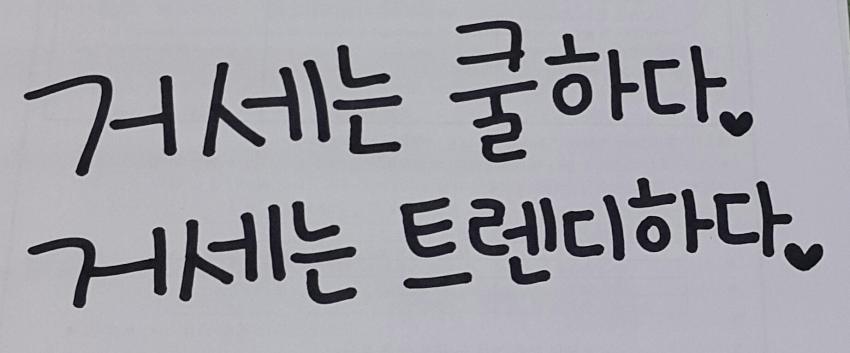 거세는 쿨하다♥
거세는 트렌디하다♥